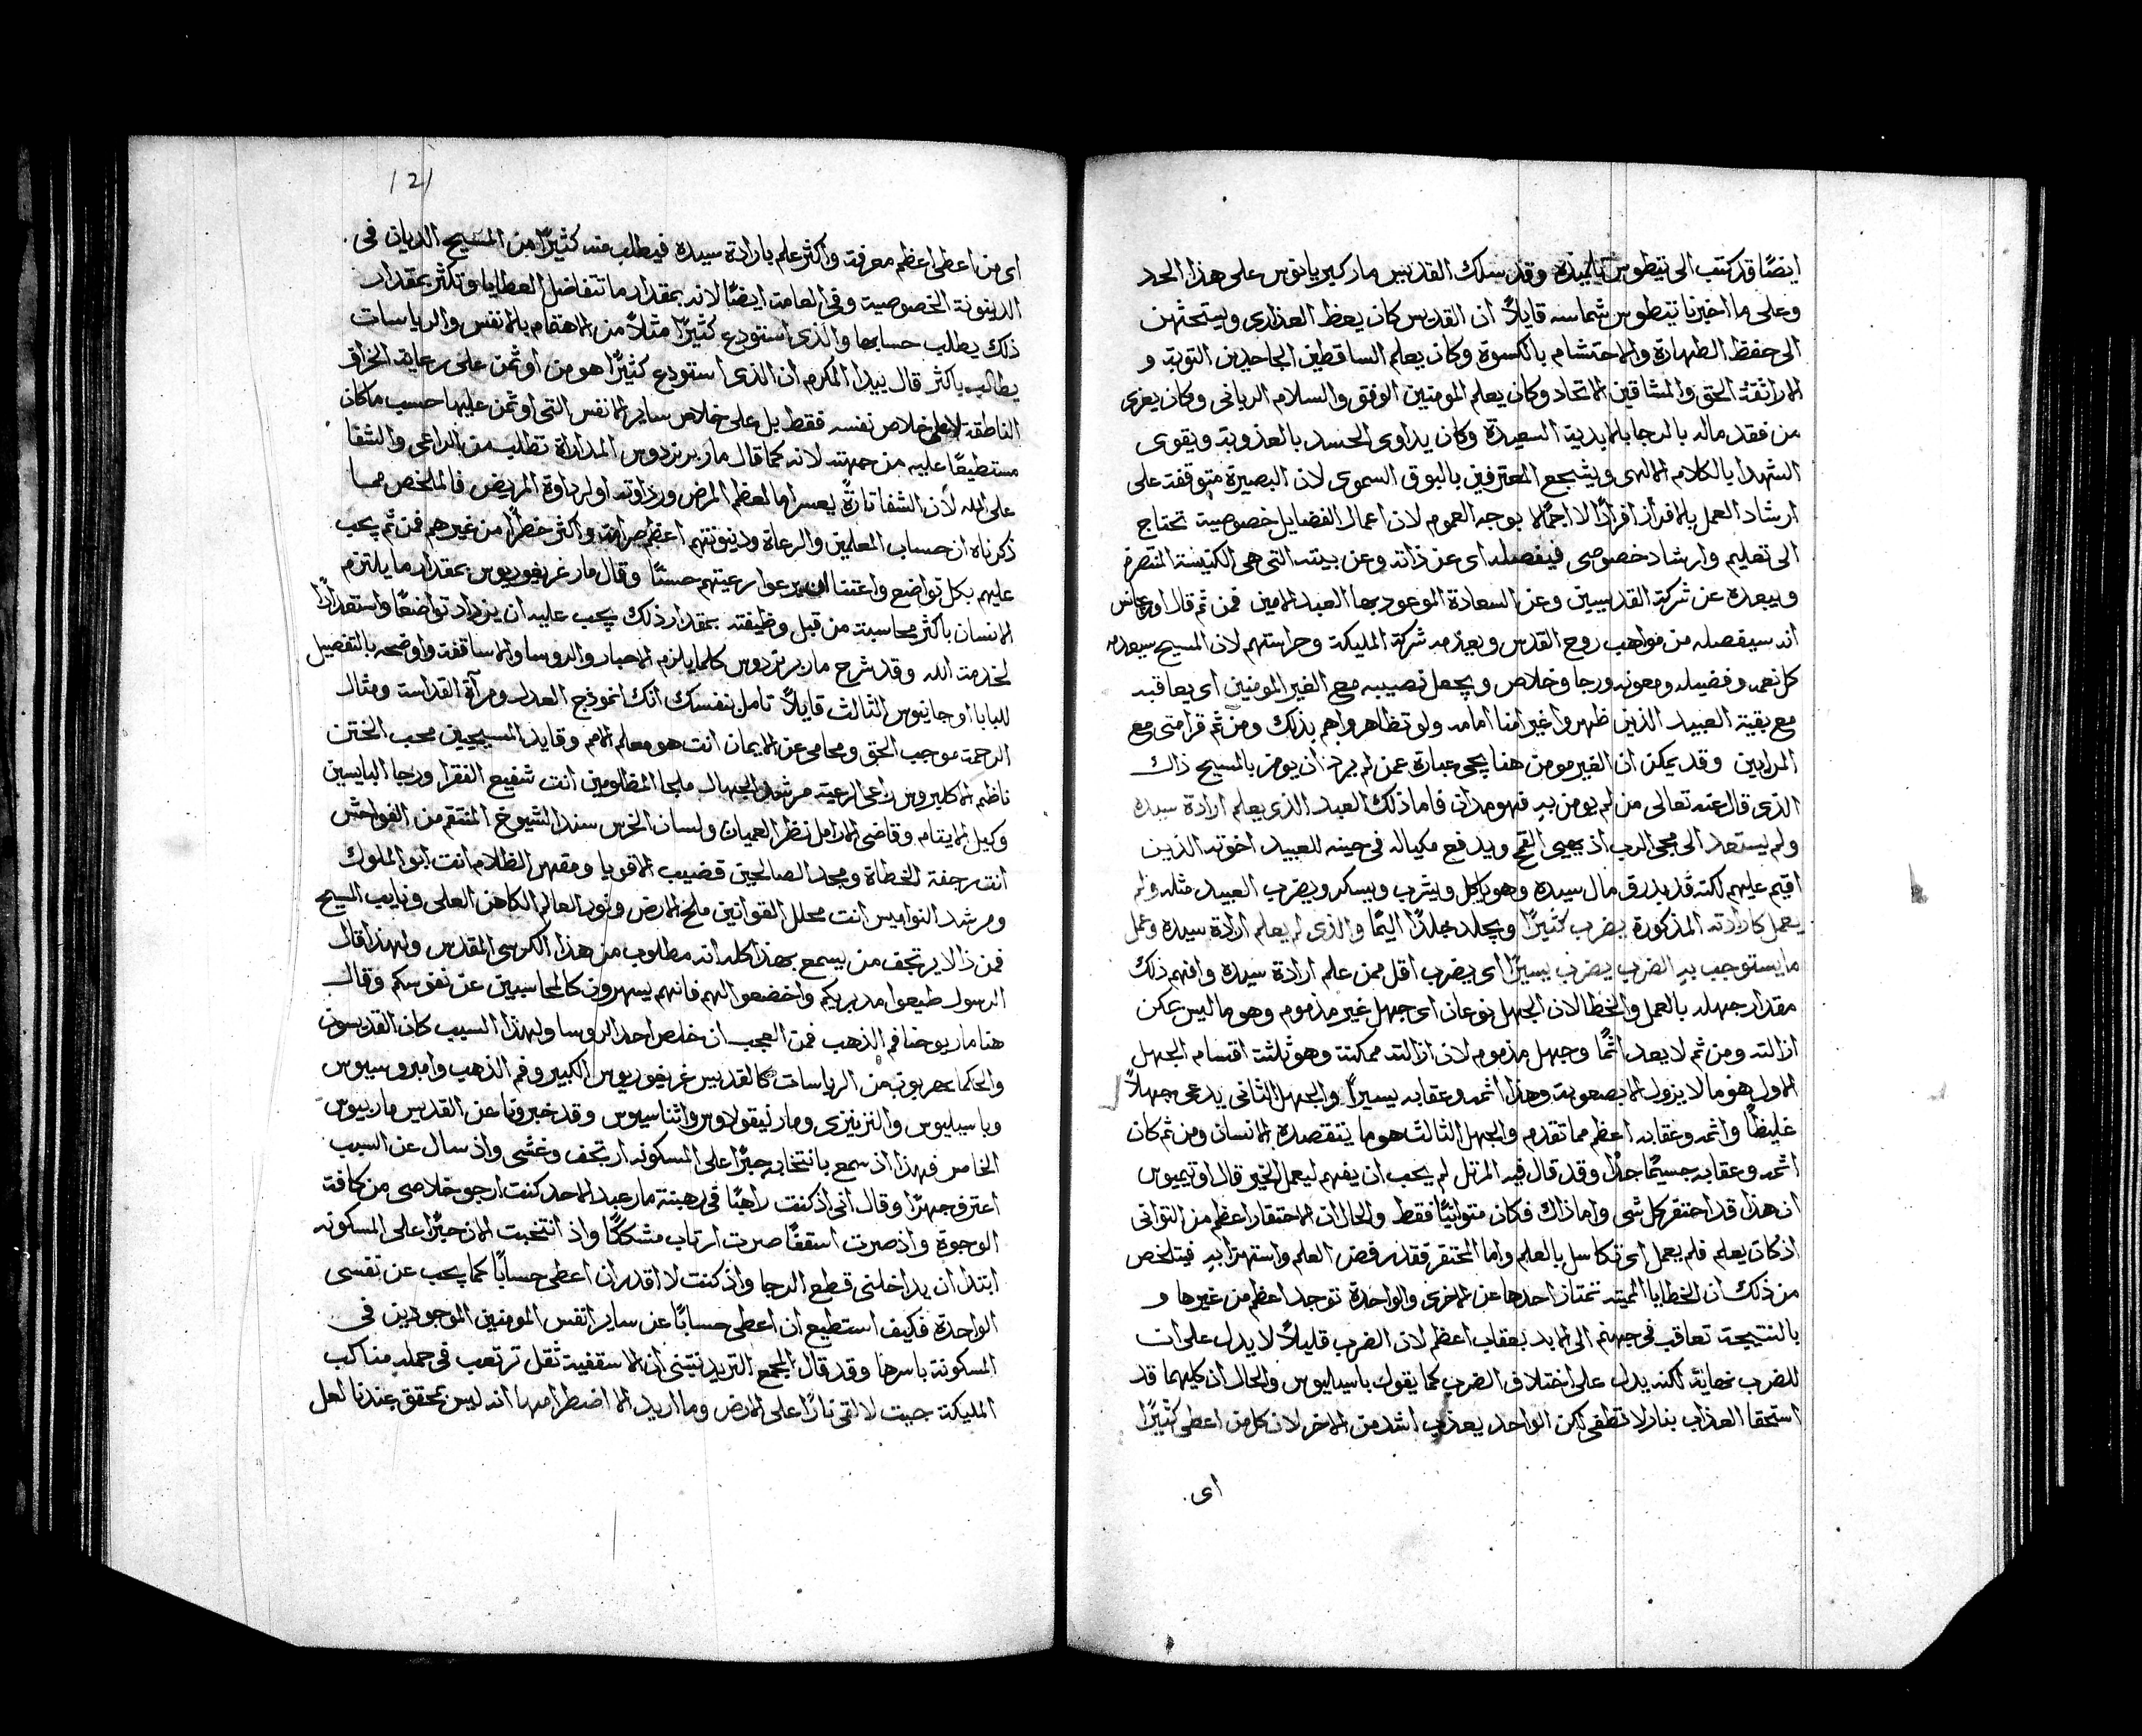 ايضًا قد كتب الى تيطوس تلميذه وقد سلك القديس مار كبريانوس على هذا الحد
وعلى ما اخبرنا تيطوس شماسه قايلاً ان القديس كان يعظ العذارى ويستحثهن
الى حفظ الطهارة والاحتشام بالكسوة وكان يعلم الساقطين الجاحدين التوبة و
الاراتقة الحق والمشاقين الاتحاد وكان يعلم المومنين الوفق والسلام الرباني وكان يعزى
من فقد ماله بالرجا بالابدية السعيدة وكان يداوى الحسد بالعذوبة ويقوى
الشهدا بالكلام الالهى ويشجع المعترفين بالبوق السموى لان البصيرة متوقفة على
ارشاد العمل بالافراز افرازًا لا اجمالا بوجه العموم لان اعمال الفضايل خصوصية تحتاج
الى تعليم وارشاد خصوصى فيفصله اى عن ذاته وعن بيته التى هى الكنيسة المتصرفة
ويبعده عن شركة القديسين وعن السعادة الموعود بها العبيد الامين فمن ثم قال
انه سيفصله من مواهب روح القدس ويعدمه شركة المليكة وحراستهم لان المسيح سيعدمه
كل نعمه وفضيله ومعونه ورجا وخلاص ويجعل نصيبه مع الغير المومنين اى يعاقبه
مع بقية العبيد الذين ظهروا غير امنا امامه ولو تظاهروا هم بذلك ومن ثم قرا متى مع
المرايين وقد يمكن ان الغير مومن هنا يجى عبارة عمن لم يرد ان يومن بالمسيح ذاك
الذى قال عنه تعالى من لم يومن بى فهو مدان فاما ذلك العبد الذى يعلم ارادة سيده
ولم يستعد الى مجى الرب اذ يهيى القمح ويدفع مكياله فى حينه للعبيد اخوته الذين
اقيم عليهم لكنه قد بدرق مال سيده وهو ياكل ويشرب ويسكر ويضرب العبيد مثله ولم
يعمل كارادته المذكورة يضرب كثيرًا ويجلد جلدًا اليمًا والذى لم يعلم ارادة سيده وعمل
ما يستوجب به الضرب يضرب يسيرًا اى يضرب اقل ممن علم ارادة سيده وافهم ذلك
مقدار جهله بالعمل والخطا لان الجهل نوعان اى جهل غير مذموم وهو ما ليس يمكن
ازالته ومن ثم لا يعد اثمًا وجهل مذموم لان ازالته ممكنة وهو ثلثة اقسام الجهل
الاول هو ما لا يزول الا بصعوبة وهذا اثمه وعقابه يسيرًا والجهل الثانى يدعى جهلاً
غليظًا واثمه وعقابه اعظم مما تقدم والجهل الثالث هو ما يتقصده الانسان ومن ثم كان
اثمه وعقابه جسيمًا جدًا وقد قال فيه المرتل لم يحب ان يفهم ليعمل الخير قال اوتيميوس
ان هذا قد احتقر كل شى واما ذاك فكان متوانيًا فقط والحال ان الاحتقار اعظم من التوانى
اذ كان يعلم فلم يعمل اى تكاسل بالعلم واما المحتقر فقد رفض العلم واستهزا به فيتلخص
من ذلك ان الخطايا المميتة تمتاز احدها عن الاخرى والواحدة توجد اعظم من غيرها و
بالنتيجة تعاقب فى جهنم الى الابد بعقاب اعظم لان الضرب قليلاً لا يدل على ان
للضرب نهاية لكنه يدل على اختلاف الضرب كما يقول باسيليوس والحال ان كليهما قد
استحقا العذاب بنار لا تطفى لكن الواحد يعذب اشد من الاخر لان كل من اعطى كثيرًا
اى
121
اى من اعطى اعظم معرفة واكثر علم بارادة سيده فيطلب منه كثيرًا من المسيح الديان فى
الدينونة الخصوصية وفى العامة ايضًا لانه بمقدار ما تتفاضل العطايا وتكثر بمقدار
ذلك يطلب حسابها والذى استودع كثيرًا مثلاً من الاهتمام بالانفس والرياسات
يطالب باكثر قال بيدا المكرم ان الذى استودع كثيرًا هو من اوتمن على رعاية الخراف
الناطقة لا على خلاص نفسه فقط بل على خلاص ساير الانفس التى اوتمن عليها حسب ما كان
مستطيعًا عليه من جهته لانه كما قال مار برنردوس المداراة تطلب من الراعى والشفا
على الله لان الشفا تارةً يعسر اما لعظم المرض ورداوته او لرداوة المريض فالملخص مما
ذكرناه ان حساب المعلمين والرعاة ودينونتهم اعظم صرامة واكثر خطرًا من غيرهم فمن ثم يجب
عليهم بكل تواضع واعتنا ان يرعوا رعيتهم حسنًا وقال مار غريغوريوس بمقدار ما يلتزم
الانسان باكثر محاسبة من قبل وظيفته بمقدار ذلك يجب عليه ان يزداد تواضعًا واستعدادًا
لخدمة الله وقد شرح مار برنردوس كلما يلزم الاحبار والروسا والاساقفة واوضحه بالتفصيل
للبابا اوجانيوس الثالث قايلاً تامل بنفسك انك انموذج العدل ومرآة القداسة ومثال
الرحمة موجب الحق ومحامى عن الايمان انت هو معلم الامم وقايد المسيحيين محب الختن
ناظم الاكليروس راعى الرعية مرشد الجهال ملجا المظلومين انت شفيع الفقرا ورجا البايسين
وكيل الايتام وقاضى الارامل نظر العميان ولسان الخرس سند الشيوخ المنتقم من الفواحش
انت رجفة الخطاة ومجد الصالحين قضيب الاقويا ومقهر الظلام انت ابو الملوك
ومرشد النواميس انت محلل القوانين ملح الارض ونور العالم الكاهن العلى ونايب المسيح
فمن ذا لا يرتجف من يسمع بهذا كله انه مطلوب من هذا الكرسى المقدس ولهذا قال
الرسول طيعوا مدبريكم واخضعوا لهم فانهم يسهرون كالمحاسبين عن نفوسكم وقال
هنا مار يوحنا فم الذهب فمن العجب ان خلص احد الروسا ولهذا السبب كان القديسون
والحكما يهربون من الرياسات كالقديس غريغوريوس الكبير وفم الذهب وامبروسيوس
وباسيليوس والنزينزى ومار نيقولاوس واثناسيوس وقد خبرونا عن القديس مار بيوس
الخامس فهذا اذ سمع بانتخابه حبرًا على المسكونة ارتجف وغشى واذ سال عن السبب
اعترف جهرًا وقال انى اذ كنت راهبًا فى رهبنة مار عبد الاحد كنت ارجو خلاصى من كافة
الوجوه واذ صرت اسقفًا صرت ارتاب مشككًا واذ انتخبت الان حبرًا على المسكونه
ابتدا ان يداخلنى قطع الرجا واذ كنت لا اقدر ان اعطى حسابًا كما يجب عن نفسى
الواحدة فكيف استطيع ان اعطى حسابًا عن ساير انفس المومنين الموجودين فى
المسكونة باسرها وقد قال المجمع التريدنتينى ان الاسقفية ثقل ترتعب فى حمله مناكب
المليكة جيت لالقى نارًا على الارض وما اريد الا اضطرامها انه ليس بمحقق عندنا لعل